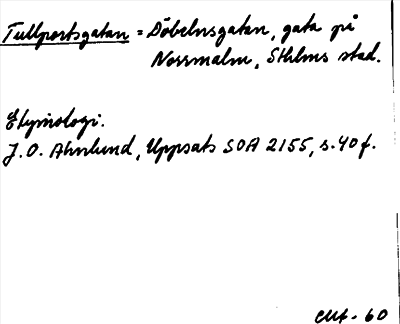 Tullportsgatan = Döbelnsgatan, gata på
Norrmalm, Sthlms stad.
Etymologi.
J.O. Ahnlund, Uppsats SOA 2155, s. 40 f.
60